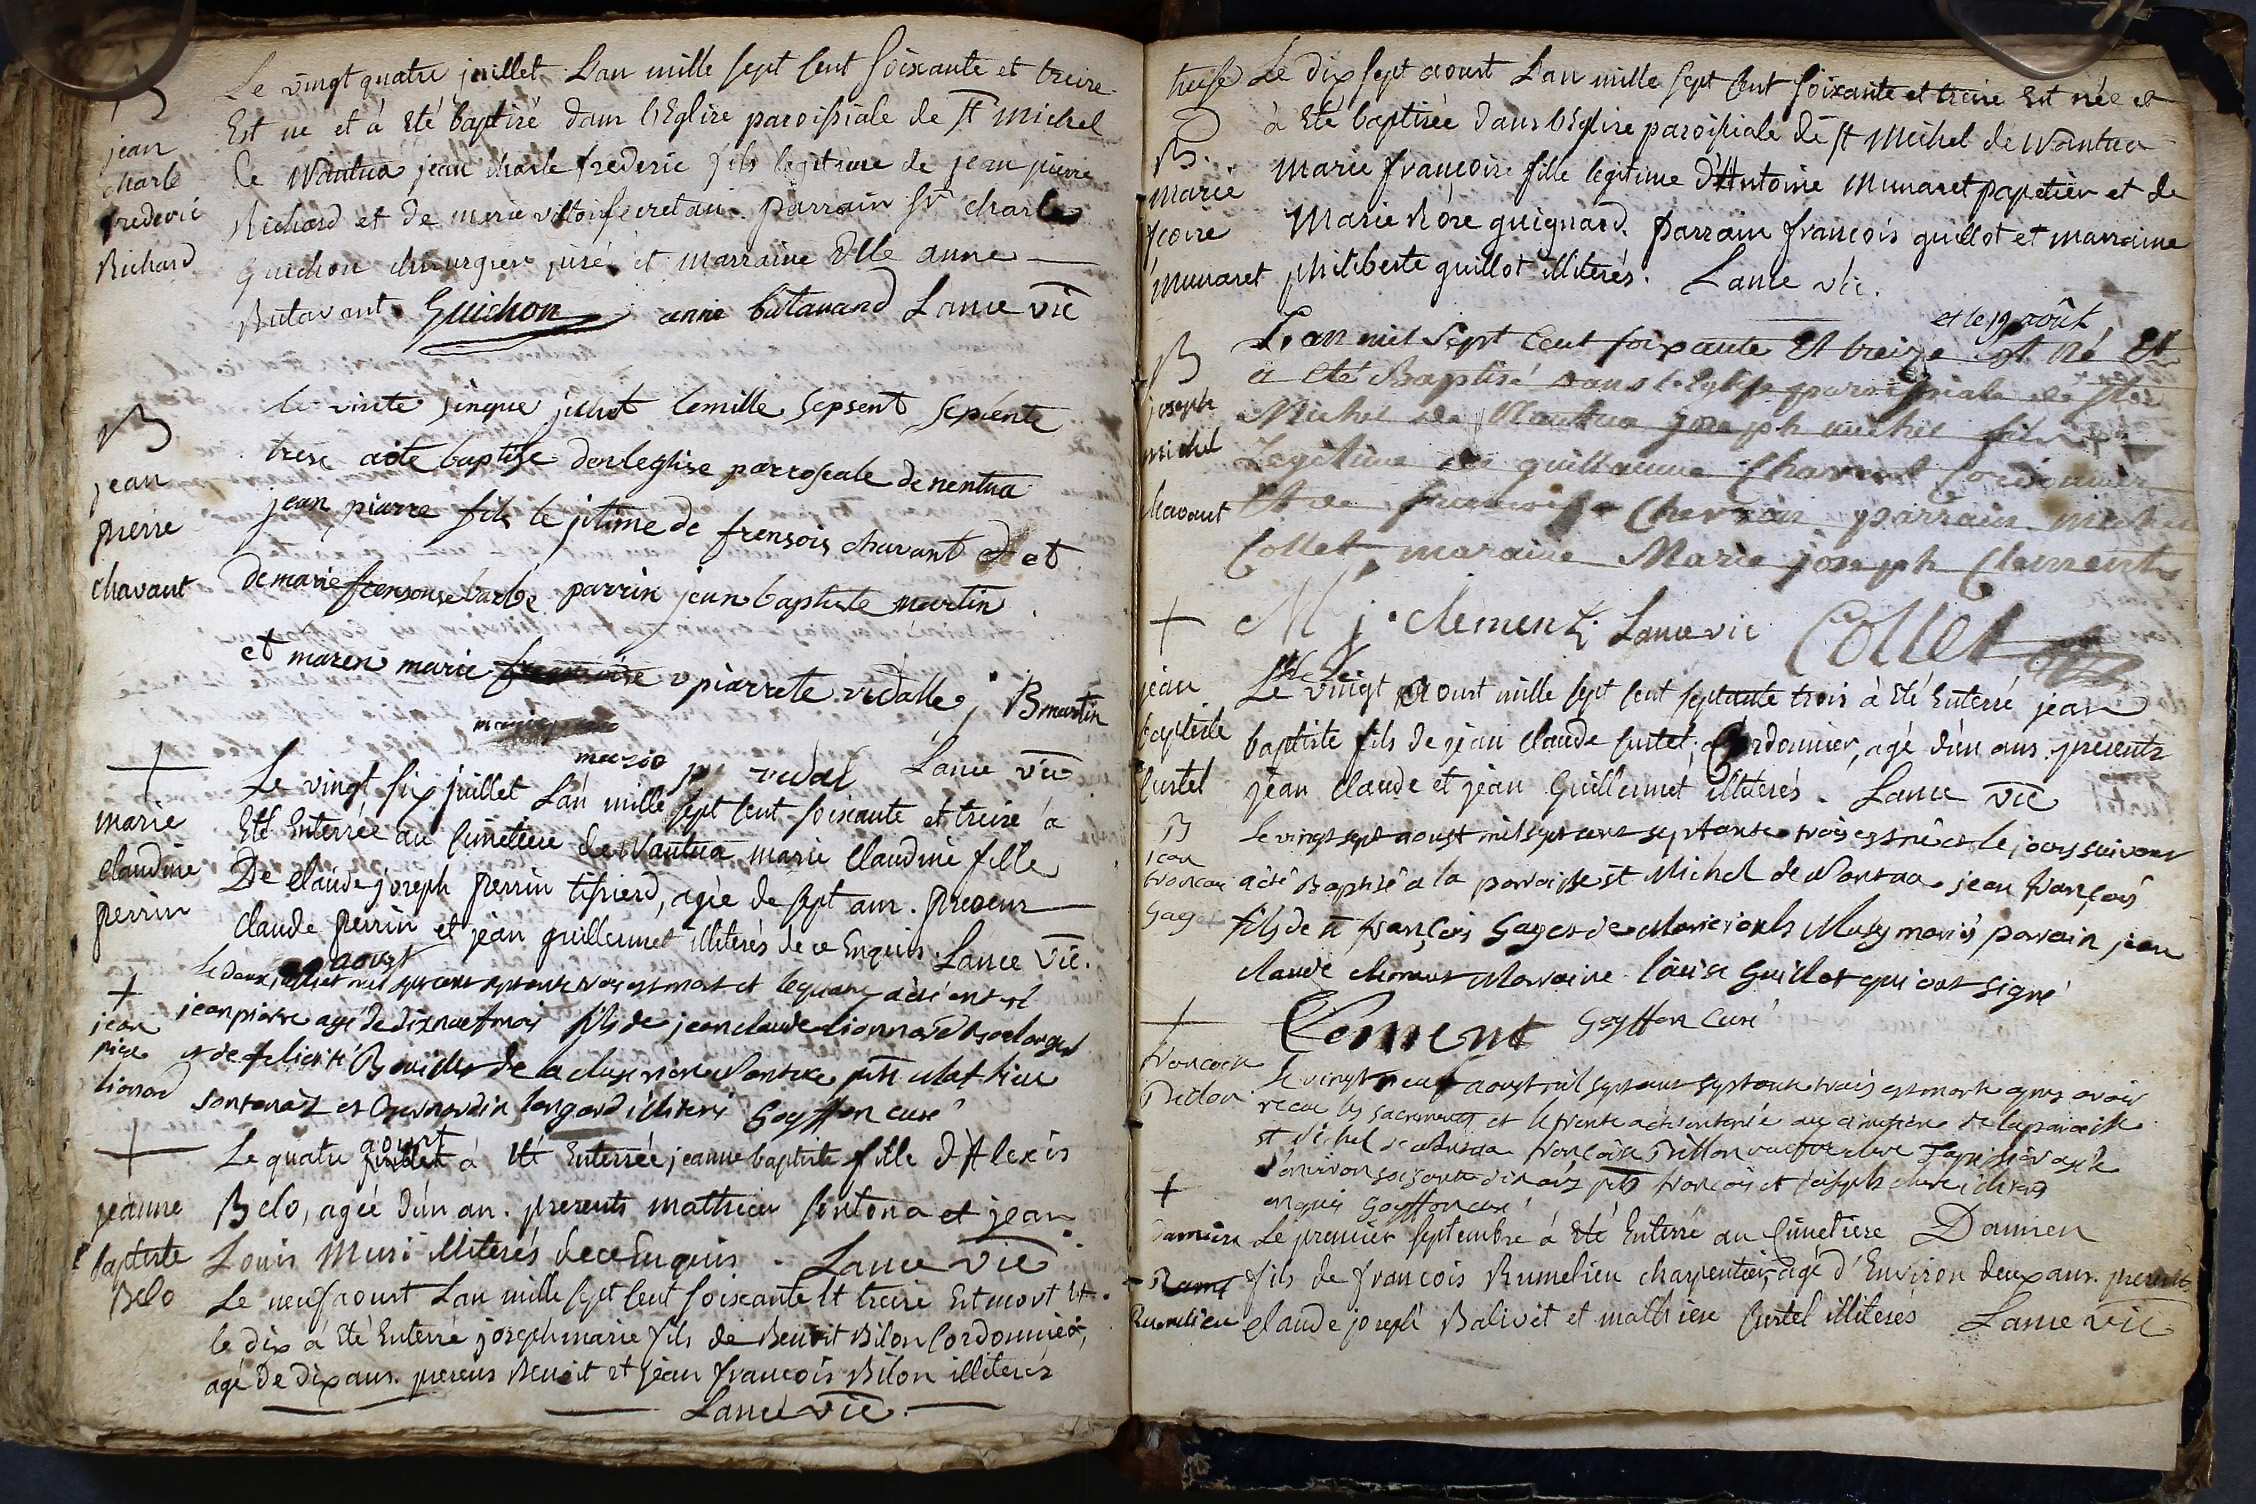 B
jean
charle
frederic
Richard
Le vingt quatre juillet L'an mille sept cent soixante et treize
Est ne et à eté baptisé dans l'Eglise paroissiale de st michel
de Nantua jean charle frederic fils legitime de jean pierre
Richard et de marie secretan. parrain sr charle
Guichon chirurgien juré et marraine dlle anne
Butavant. Guichon anne butavand Lance vic
B
jean
pierre
chavant
le vinte sinque juliet lemille sepsent sepiente
trese aeté baptise denleglise parroseale de nentua
jean piarre fils le jitime de frensois chavant et
de marie fransoise barbe parrin jean baptiste martin
et maren marie piarrete vidalle j B martin
marie pi vidal Lance vic
+
marie
claudine
perrin
Le vingt six juillet L'an mille sept cent soixante et treize à
Eté Enterrée au Cimetiere de Nantua marie claudine fille
De claude joseph perrin tissierd, agée de sept ans. presens
claude perrin et jean guillermet illiterés de ce Enquis. Lance vic.
+
jean
piere
lionard
aoust
le deux juillet mil sept cent septante trois est mort et le quatre a eté enterré
jean pierre agé de dix neuf mois fils de jean claude lionnard
et de felicité Bouiller de la cluse riere Nantua pnts Mathieu
Santonaz et Bernardin longard illiterés Goyffon curé
+
jeanne
baptiste
Belo
aoust
Le quatre juillet à eté Enterrée jeanne baptiste fille d'Alexis
Belo, agée d'un an. presents mathieu sontona et jean
Louis Muri illiterés de ce Enquis. Lance vic
Le neuf aoust L'an mille sept cent soixante et treize Est mort et
le dix à eté Enterré joseph marie fils de Benoit Bilon Cordonnier,
agé De dix ans. presens Benoit et jean françois Bilon illiterés
Lance vic.
treise Le dix sept aoust L'an mille sept cent soixante et treize est née et
à eté baptisée dans l'Eglise paroissiale de st Michel de Nantua
marie françoise fille legitime d'Antoine Munaret papetier et de
Marie Rose guignard. parrain françois guillot et marraine
philiberte guillot illiterés. Lance vic.
B.
marie
fcoise
munaret
B
joseph
michel
chavant
et le 19 août
L'an mil sept cent soixante et treize est né et
a eté Baptisé dans l'Eglise paroissiale de st
Michel de Nantua joseph michel fils
Legitime de guillaume Chavant Cordonnier
et de françoise Chevron parrain michel
Collet maraine Marie joseph Clement
M j. clement Lance vic Collet
+
jean
baptiste
Curtet
Le vingt aoust mille sept cent septante trois à eté Enterré jean
baptiste fils de jean claude Curtet, Cordonnier, agé d'un ans. presents
jean claude et jean Guillermet illiterés. Lance vic
B
jean
francois
Gaget
le vingt sept aoust mil sept cent septante trois est né et le jour suivant
a eté Baptisé a la paroisse st Michel de Nantua jean françois
fils de françois Gaget et de Marie mariés parrain jean
claude clement Marraine louise Guillot qui ont signé
Clement Goyffon curé
+
francoise
Dutlon
le vingt neuf aoust mil sept cent septante trois est morte apres avoir
recu les sacrements et le trente a eté enterrée au cimetiere de la paroisse
st Michel de Nantua françoise veufve agée
d'environ soixante dix ans pnts françois et joseph illiterés
enquis Goyffon curé
+
Damien
Rumelieu
Le premier septembre à eté Enterré au Cimetiere Damien
fils de françois Rumelieu charpentier, agé d'Environ deux ans. presents
claude joseph Balivet et mathieu Curtet illiterés Lance vic